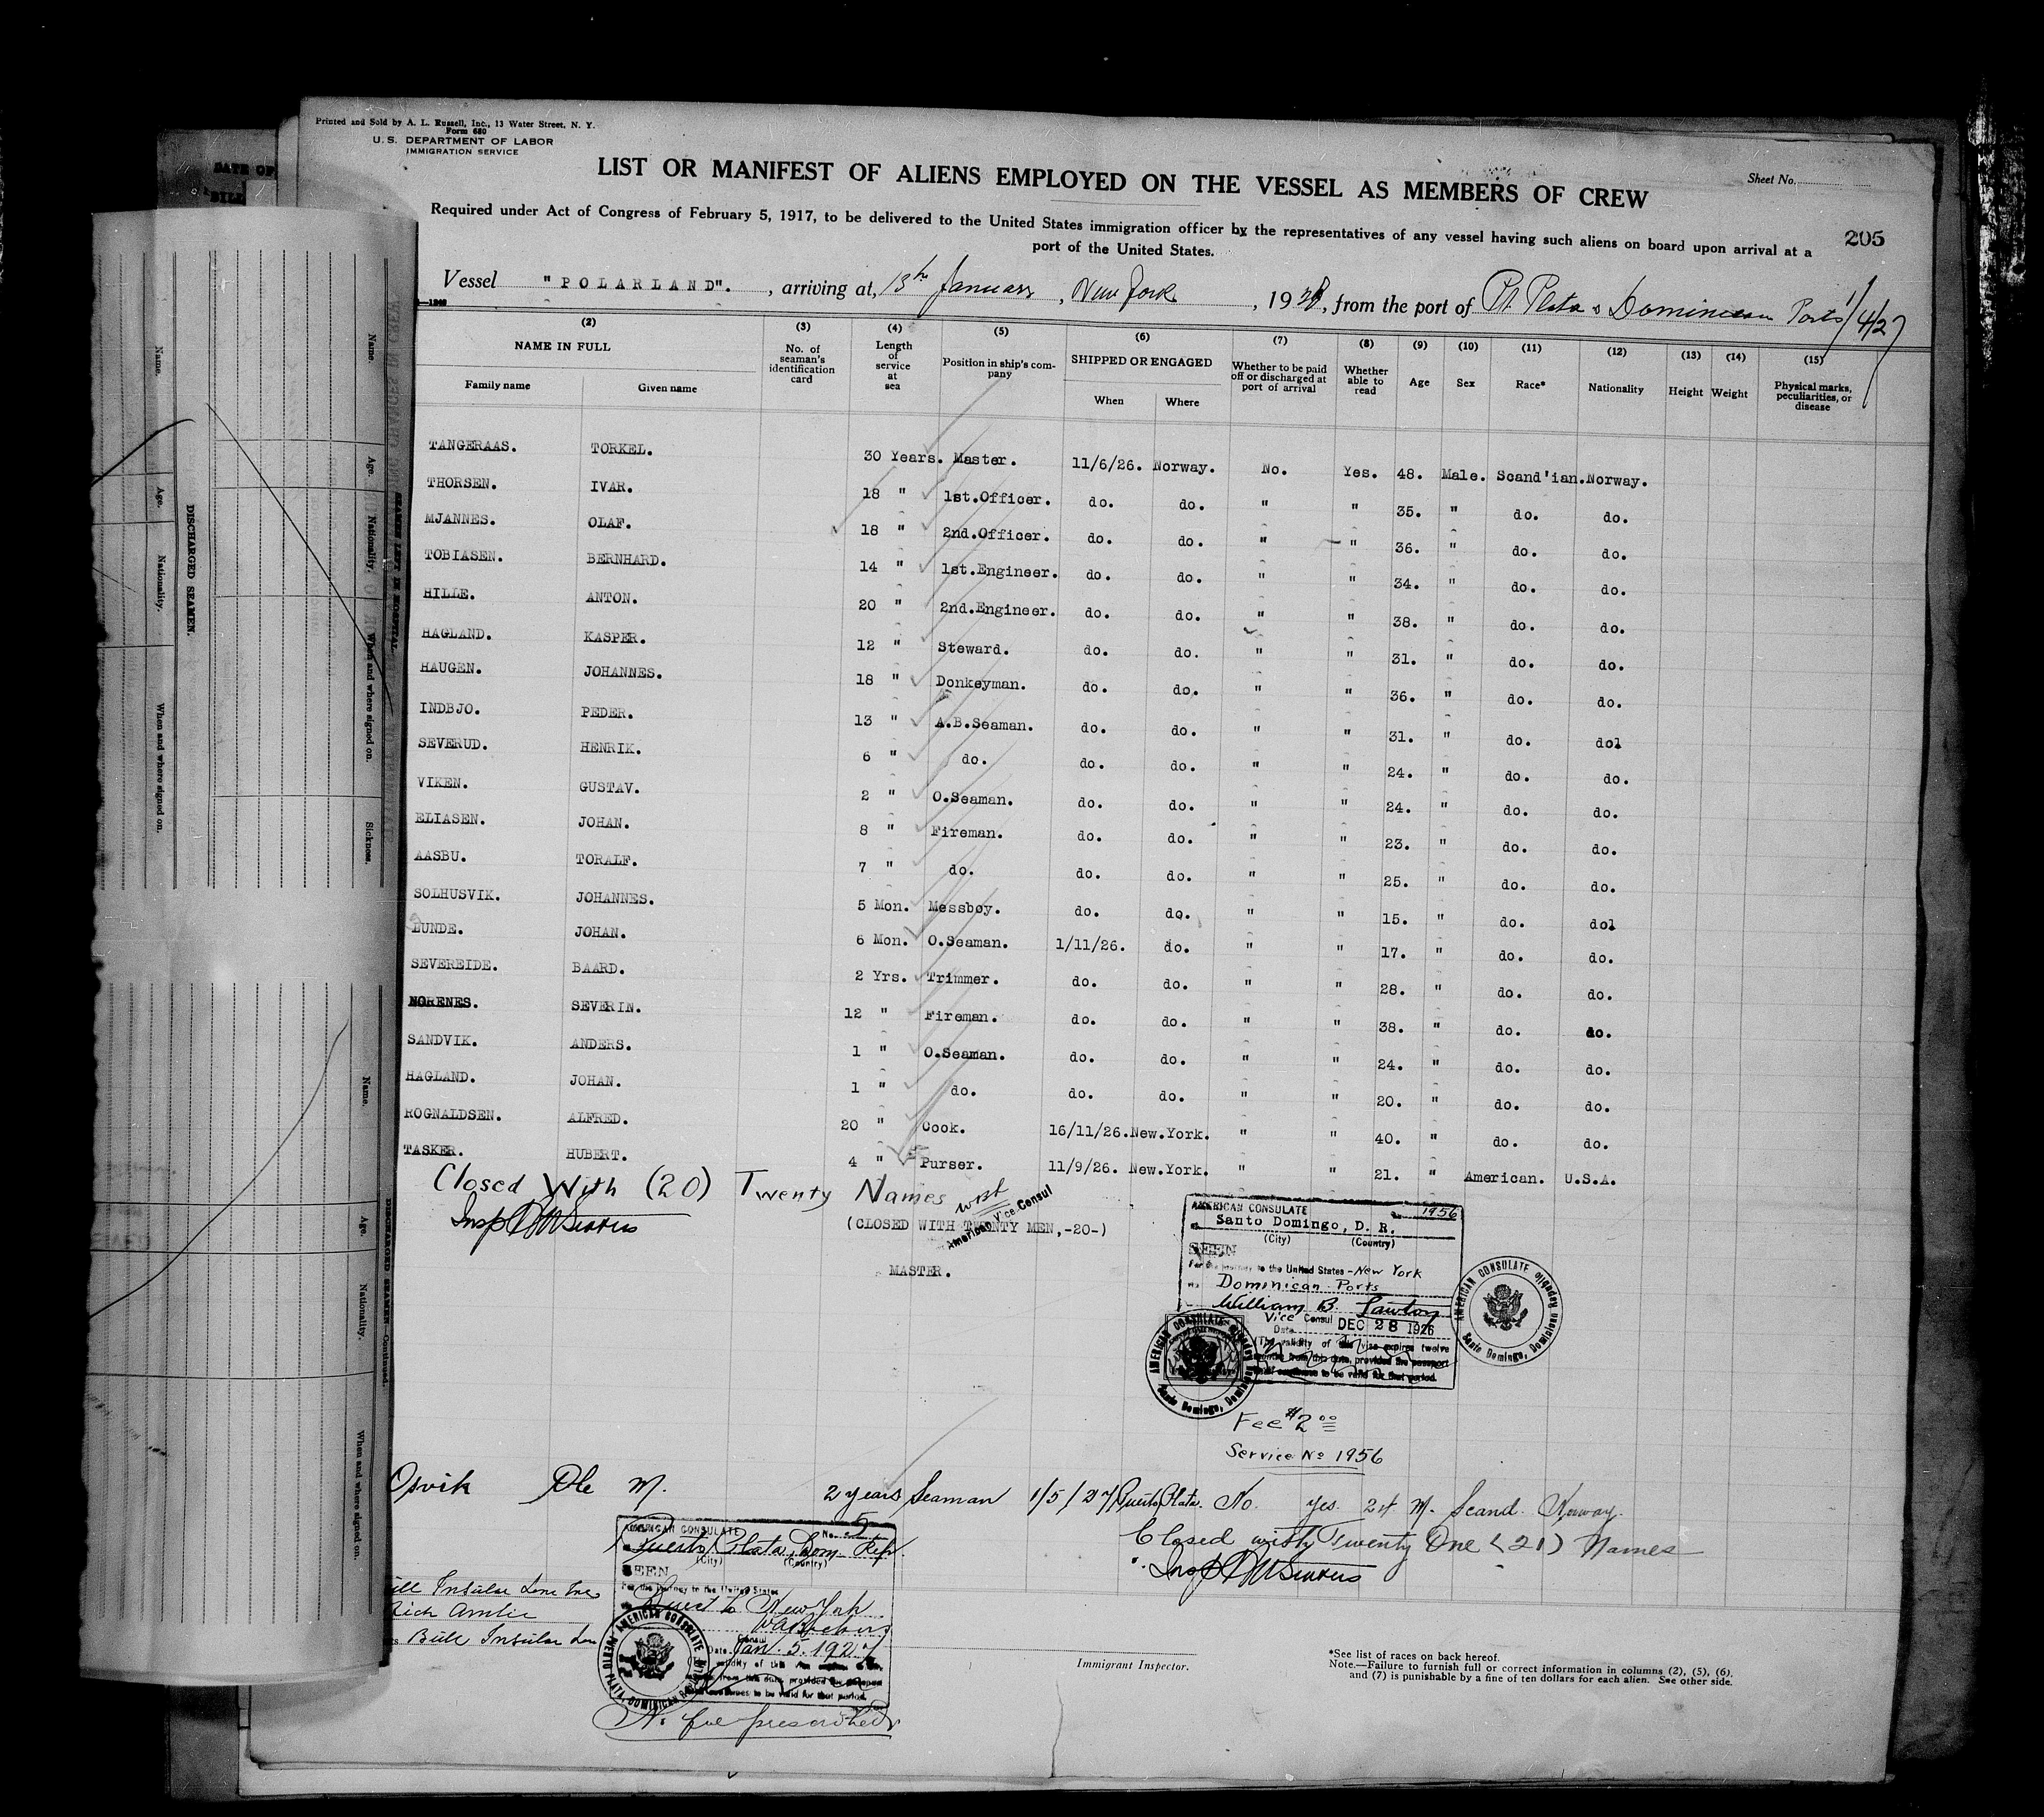 Printed and Sold by A. L. Russell, Inc., 13 Water Street, N. Y.
Form 680
U. S. DEPARTMENT OF LABOR
IMMIGRATION SERVICE
LIST OR MANIFEST OF ALIENS EMPLOYED ON THE VESSEL AS MEMBERS OF CREW
Sheet No.
Required under Act of Congress of February 5, 1917, to be delivered to the United States immigration officer by the representatives of any vessel having such aliens on board upon arrival at a
port of the United States.
205
Vessel "POLARLAND". , arriving at, 13th January , New York , 19 , from the port of Pt Plata & Dominican Ports 1/4/27
(2) (3) (4) (5) (6) (7) (8) (9) (10) (11) (12) (13) (14) (15)
NAME IN FULL No. of seaman's identification card Length of service at sea Position in ship's company SHIPPED OR ENGAGED Whether to be paid off or discharged at port of arrival Whether able to read Age Sex Race* Nationality Height Weight Physical marks, peculiarities, or disease
Family name Given name When Where
TANGERAAS. TORKEL. 30 Years. Master. 11/6/26. Norway. No. Yes. 48. Male. Scand'ian. Norway.
THORSEN. IVAR. 18 " 1st.Officer. do. do. " " 35. " do. do.
MJANNES. OLAF. 18 " 2nd.Officer. do. do. " " 36. " do. do.
TOBIASEN. BERNHARD. 14 " 1st.Engineer. do. do. " " 34. " do. do.
HILLE. ANTON. 20 " 2nd.Engineer. do. do. " " 38. " do. do.
HAGLAND. KASPER. 12 " Steward. do. do. " " 31. " do. do.
HAUGEN. JOHANNES. 18 " Donkeyman. do. do. " " 36. " do. do.
INDBJO. PEDER. 13 " A.B.Seaman. do. do. " " 31. " do. dol
SEVERUD. HENRIK. 6 " do. do. do. " " 24. " do. do.
VIKEN. GUSTAV. 2 " O.Seaman. do. do. " " 24. " do. do.
ELIASEN. JOHAN. 8 " Fireman. do. do. " " 23. " do. do.
AASBU. TORALF. 7 " do. do. do. " " 25. " do. do.
SOLHUSVIK. JOHANNES. 5 Mon. Messboy. do. do. " " 15. " do. dol
LUNDE. JOHAN. 6 Mon. O.Seaman. 1/11/26. do. " " 17. " do. do.
SEVEREIDE. BAARD. 2 Yrs. Trimmer. do. do. " " 28. " do. do.
NORENES. SEVERIN. 12 " Fireman. do. do. " " 38. " do. do.
SANDVIK. ANDERS. 1 " O.Seaman. do. do. " " 24. " do. do.
HAGLAND. JOHAN. 1 " do. do. do. " " 20. " do. do.
ROGNALDSEN. ALFRED. 20 " Cook. 16/11/26. New.York. " " 40. " do. do.
TASKER. HUBERT. 4 " Purser. 11/9/26. New.York. " " 21. " American. U.S.A.
Closed With (20) Twenty Names
American Vice Consul
(CLOSED WITH TWENTY MEN,-20-)
MASTER.
AMERICAN CONSULATE No. 1956
Santo Domingo, D. R.
(City) (Country)
SEEN
For the journey to the United States - New York
Dominican Ports
William B. Lawton
Vice Consul
Date DEC 28 1926
(The validity of this visa expires twelve
months from this date, provided the passport
shall continue to be valid for that period.
AMERICAN CONSULATE Santo Domingo, Dominican Republic
AMERICAN CONSULATE
Santo Domingo, Dominican
Fee $2.00
Service No 1956
Osvik Ole M. 2 years Seaman 1/5/27 Puerto Plata. No. yes. 24 M. Scand. Norway.
Closed with Twenty One (21) Names
AMERICAN CONSULATE No. 5
Puerto Plata, Dom. Rep.
(City) (Country)
SEEN
For the journey to the United States
Direct to New York
Consul
Date Jan. 5. 1927
validity of this
from this date, provided the passport
continues to be valid for that period.
AMERICAN CONSULATE PUERTO PLATA, DOMINICAN
No fee prescribed
Insular Line Inc
Bull Insular Line
Immigrant Inspector.
*See list of races on back hereof.
Note.—Failure to furnish full or correct information in columns (2), (5), (6),
and (7) is punishable by a fine of ten dollars for each alien. See other side.
DATE OF
BILL
Name. Age. Nationality. When and where signed on.
DISCHARGED SEAMEN.
Name. Age. Nationality. When and where signed on. Sickness.
SEAMEN LEFT IN HOSPITAL
Name. Age. Nationality. When and where signed on.
DISCHARGED SEAMEN—Continued.